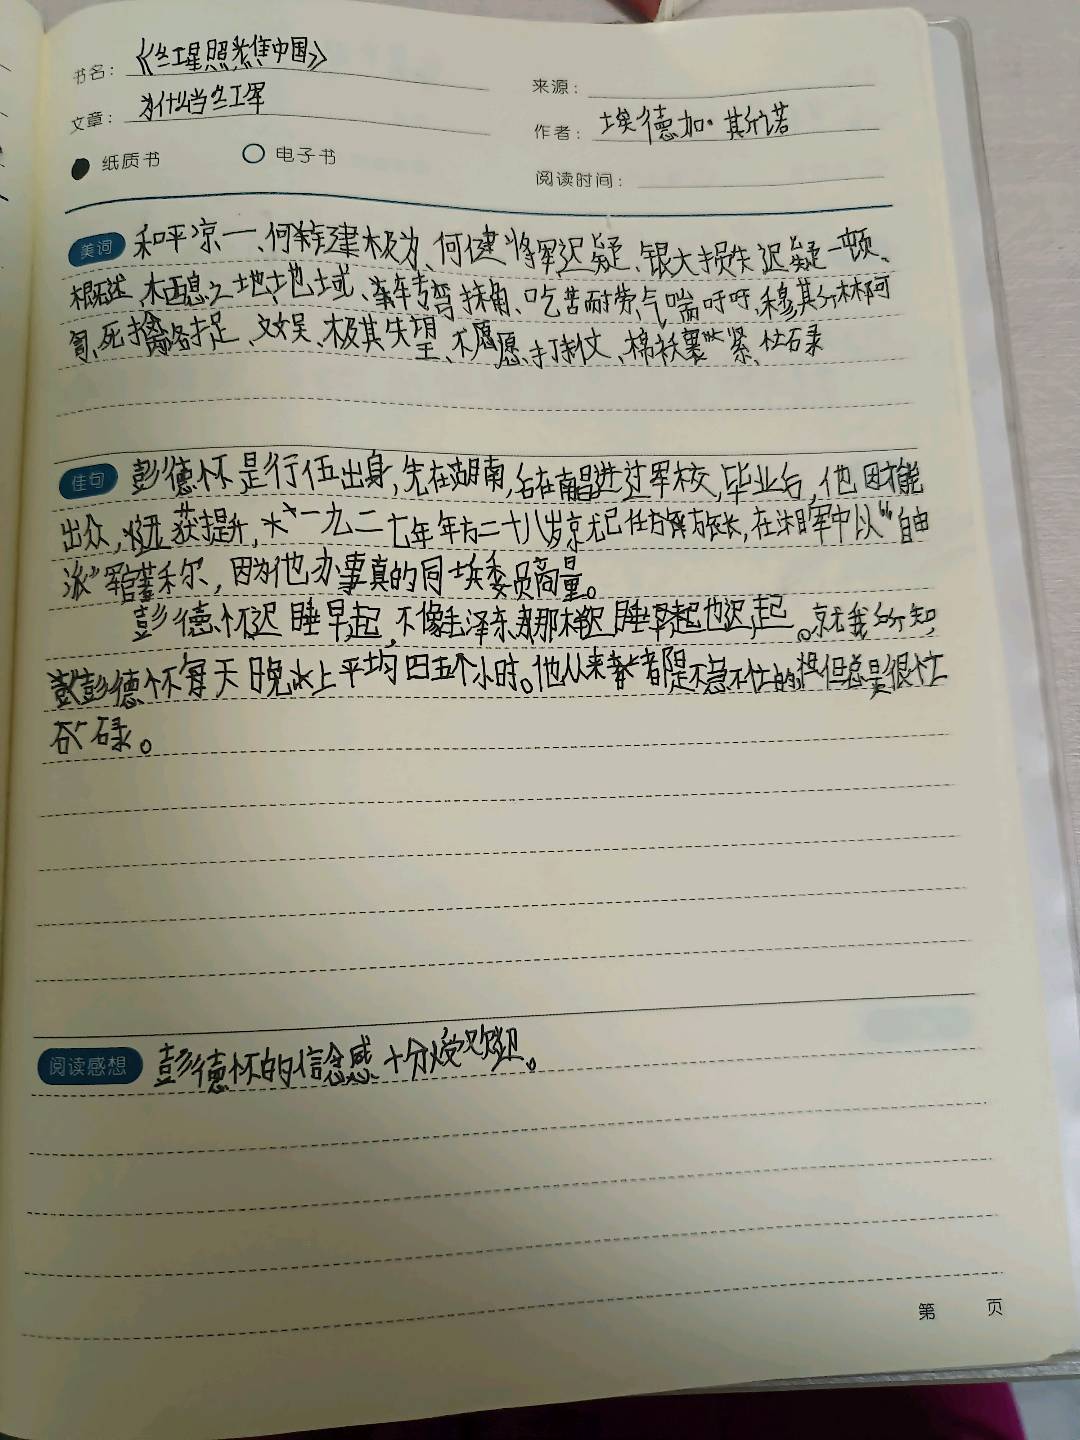 书名：《红星照耀中国》
来源：
文章：为什么当红军
作者：埃德加·斯诺
纸质书 电子书
阅读时间：
美词 和平凉一、何键极为、何健将军迟疑、银大损失迟疑一顿、
概述、栖息之地、地域、拐弯抹角、吃苦耐劳、气喘吁吁、穆斯林阿
訇、死擒、捉、娱、极其失望、不愿、打仗、棉袄裹紧、忙碌
佳句 彭德怀是行伍出身，先在湖南，后在南昌进过军校，毕业后，他因才能
出众，迅获提升，一九二七年年方二十八岁就已任方旅长，在湘军中以“自由
派”军官著称，因为他办事真的同士兵委员商量。
彭德怀迟睡早起，不像毛泽东那样迟睡起也迟起。就我所知，
彭德怀每天晚上平均四五个小时。他从来都是不急不忙的但总是很忙
碌。
阅读感想 彭德怀的信念感十分
第 页